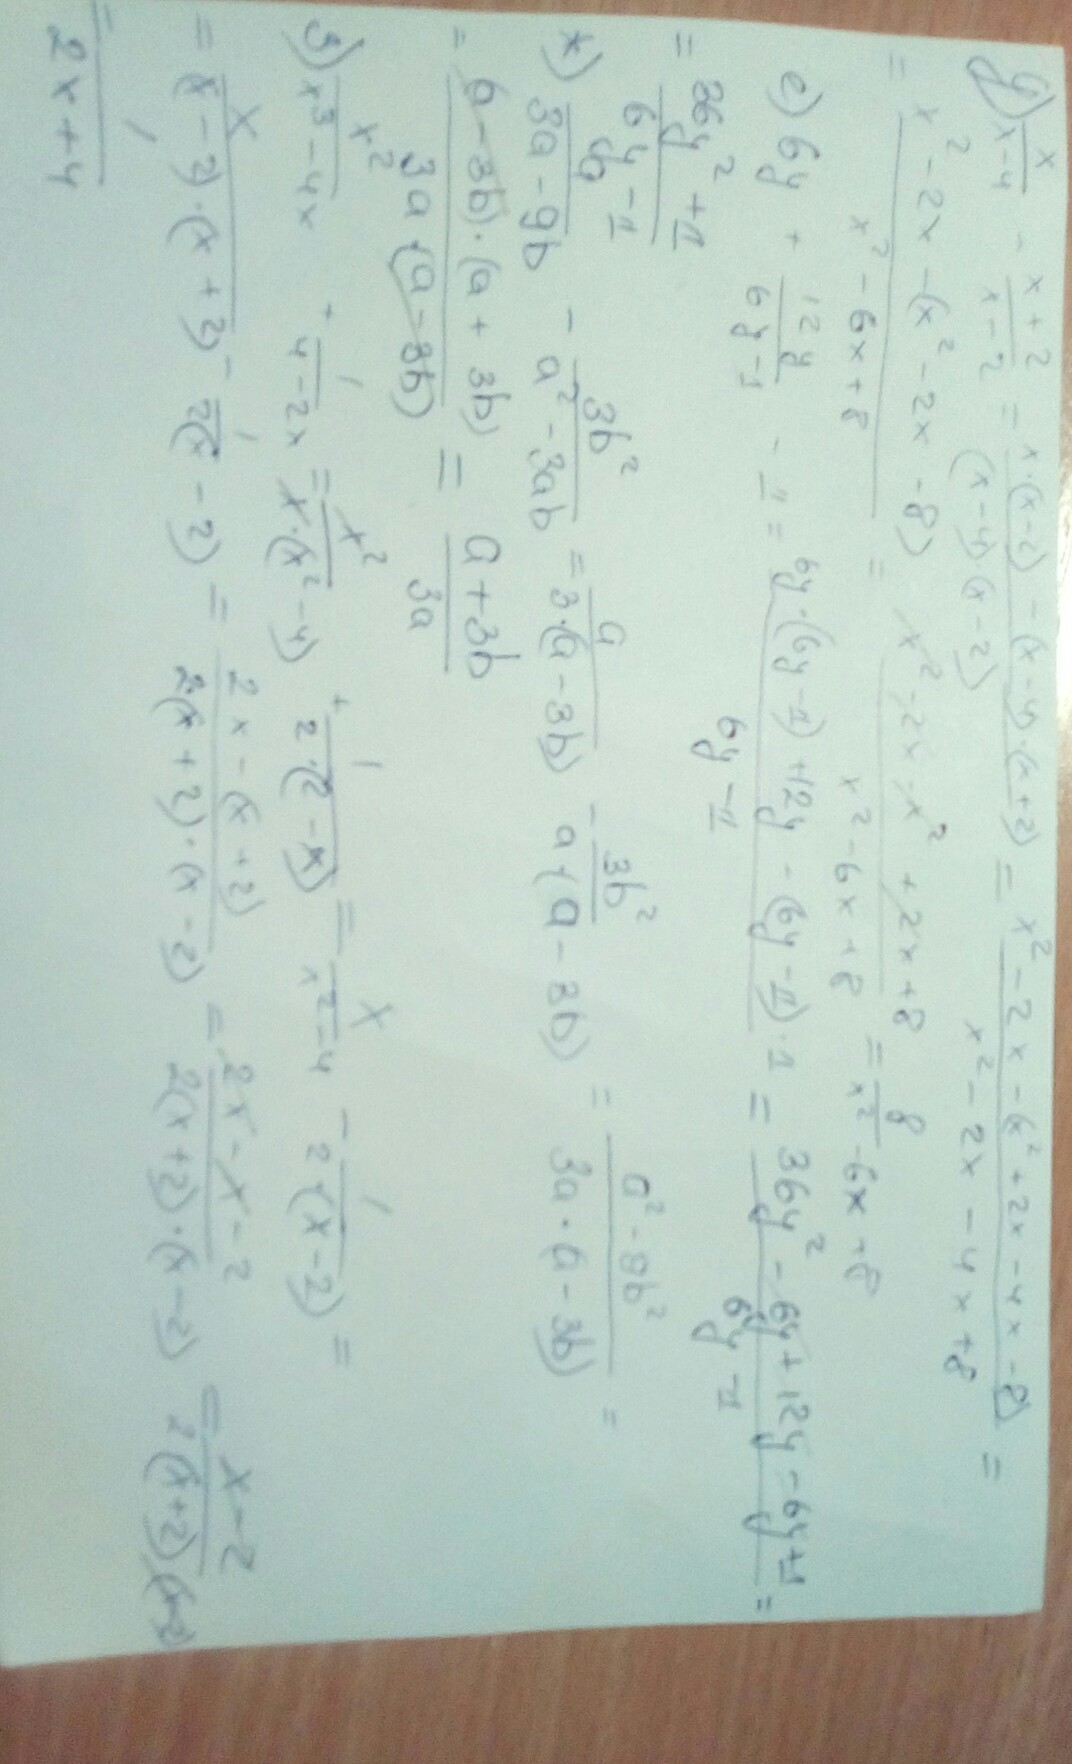 д) x/(x-4) - (x+2)/(x-2) = (x·(x-2) - (x-4)·(x+2))/((x-4)·(x-2)) = (x² - 2x - (x² + 2x - 4x - 8))/(x² - 2x - 4x + 8) =
= (x² - 2x - (x² - 2x - 8))/(x² - 6x + 8) = (x² - 2x - x² + 2x + 8)/(x² - 6x + 8) = 8/(x² - 6x + 8)
е) 6y + 12y/(6y-1) - 1 = (6y·(6y-1) + 12y - (6y-1)·1)/(6y-1) = (36y² - 6y + 12y - 6y + 1)/(6y-1) =
= (36y² + 1)/(6y-1)
ж) a/(3a-9b) - 3b²/(a²-3ab) = a/(3·(a-3b)) - 3b²/(a·(a-3b)) = (a² - 9b²)/(3a·(a-3b)) =
= ((a-3b)·(a+3b))/(3a·(a-3b)) = (a+3b)/3a
з) x²/(x³-4x) + 1/(4-2x) = x²/(x·(x²-4)) + 1/(2·(2-x)) = x/(x²-4) - 1/(2·(x-2)) =
= x/((x-2)·(x+2)) - 1/(2(x-2)) = (2x-(x+2))/(2(x+2)·(x-2)) = (2x-x-2)/(2(x+2)·(x-2)) = (x-2)/(2(x+2)(x-2))
= 1/(2x+4)